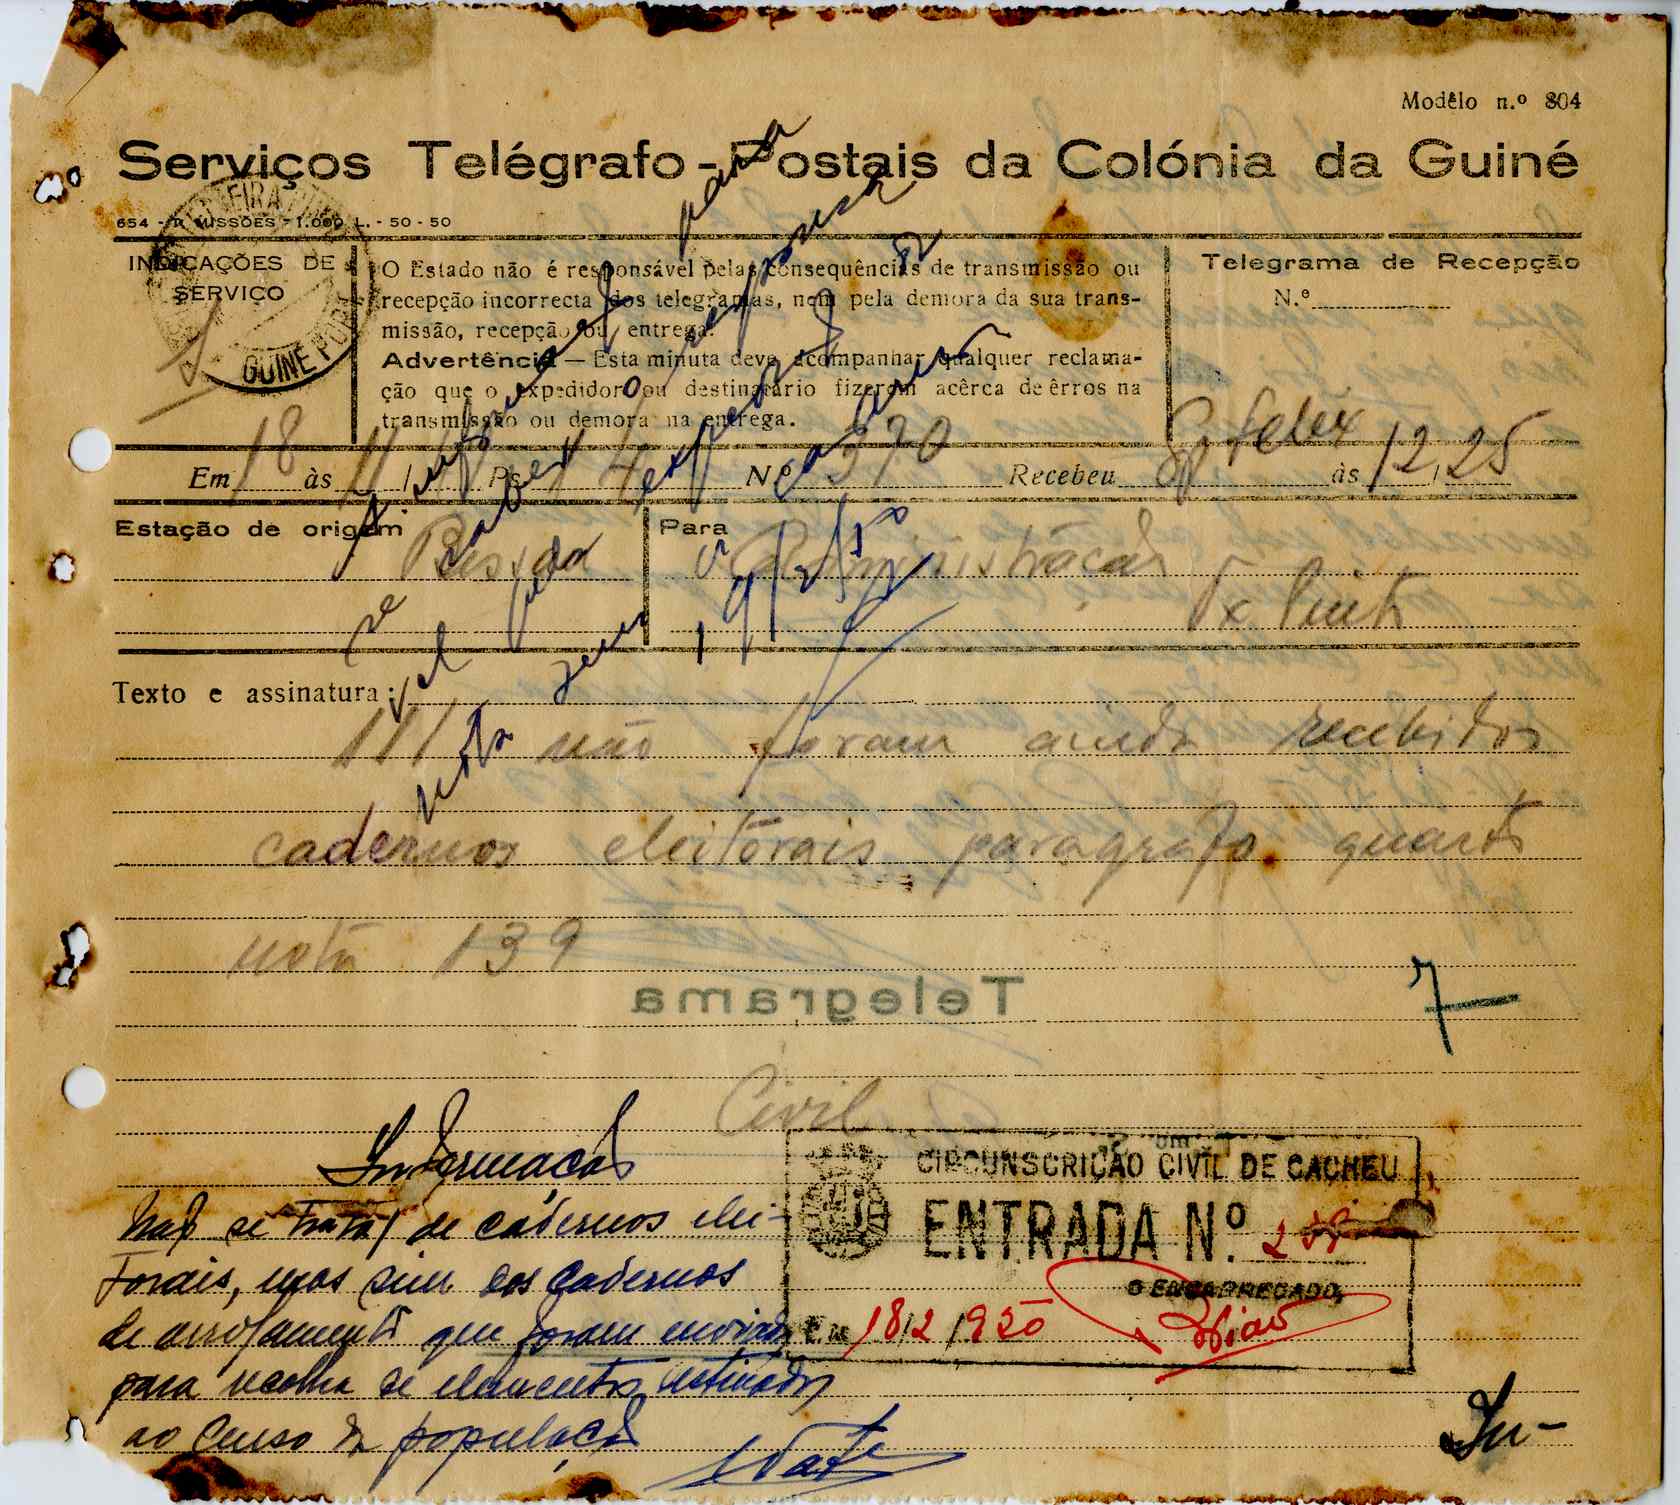 Modêlo n.º 804
Serviços Telégrafo-Postais da Colónia da Guiné
654 - R. MISSÕES - 1.000 L. - 50 - 50
GUINÉ PORT
INDICAÇÕES DE SERVIÇO
O Estado não é responsável pelas consequências de transmissão ou
recepção incorrecta dos telegramas, nem pela demora da sua trans-
missão, recepção ou entrega.
Advertência — Esta minuta deve acompanhar qualquer reclama-
ção que o expedidor ou destinatário fizerem acêrca de êrros na
transmissão ou demora na entrega.
Telegrama de Recepção
N.º
Em 18 às 11 / Ps. 14 N.º 370 Recebeu Felix às 12 / 25
Estação de origem
Para
Administração
Tx Pinto
para
o resposta
19/2/50
Texto e assinatura:
111 não foram ainda recebidos
cadernos eleitorais paragrafo quarto
nota 139
Telegrama
7
Civil
Informação
Não se trata de cadernos elei-
torais, mas sim dos cadernos
de arrolamento que foram enviados
para recolha de elementos destinados
ao Censo da população
CIRCUNSCRIÇÃO CIVIL DE CACHEU
ENTRADA N.º
O ENCARREGADO,
Em 18/2/1950
In-